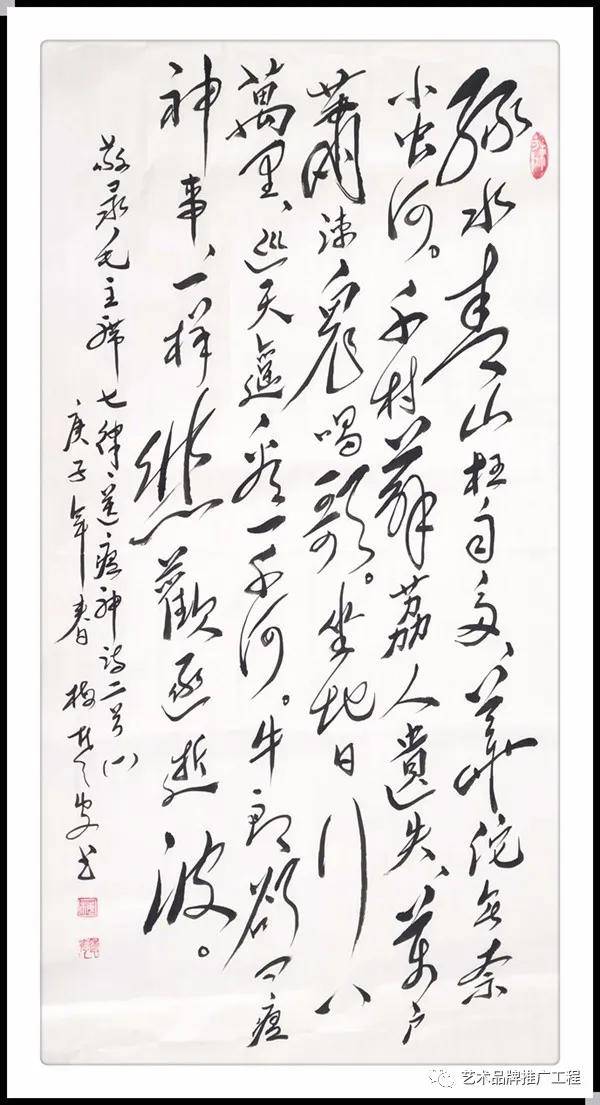 綠水青山枉自多、華佗无奈
小虫河。千村薜荔人遺失、萬户
蕭疎鬼唱歌。坐地日行八
萬里、巡天遥看一千河。牛郎欲问瘟
神事、一样悲歡逐逝波。
敬录毛主席七律、送瘟神诗二首(一)
庚子年春 梅
艺术品牌推广工程